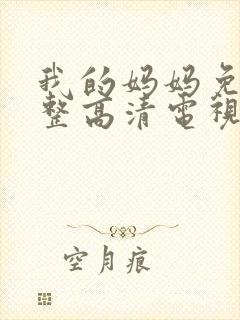 我的妈妈免
整高清電視
空月痕